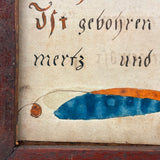 Ist gebohren
mertz und